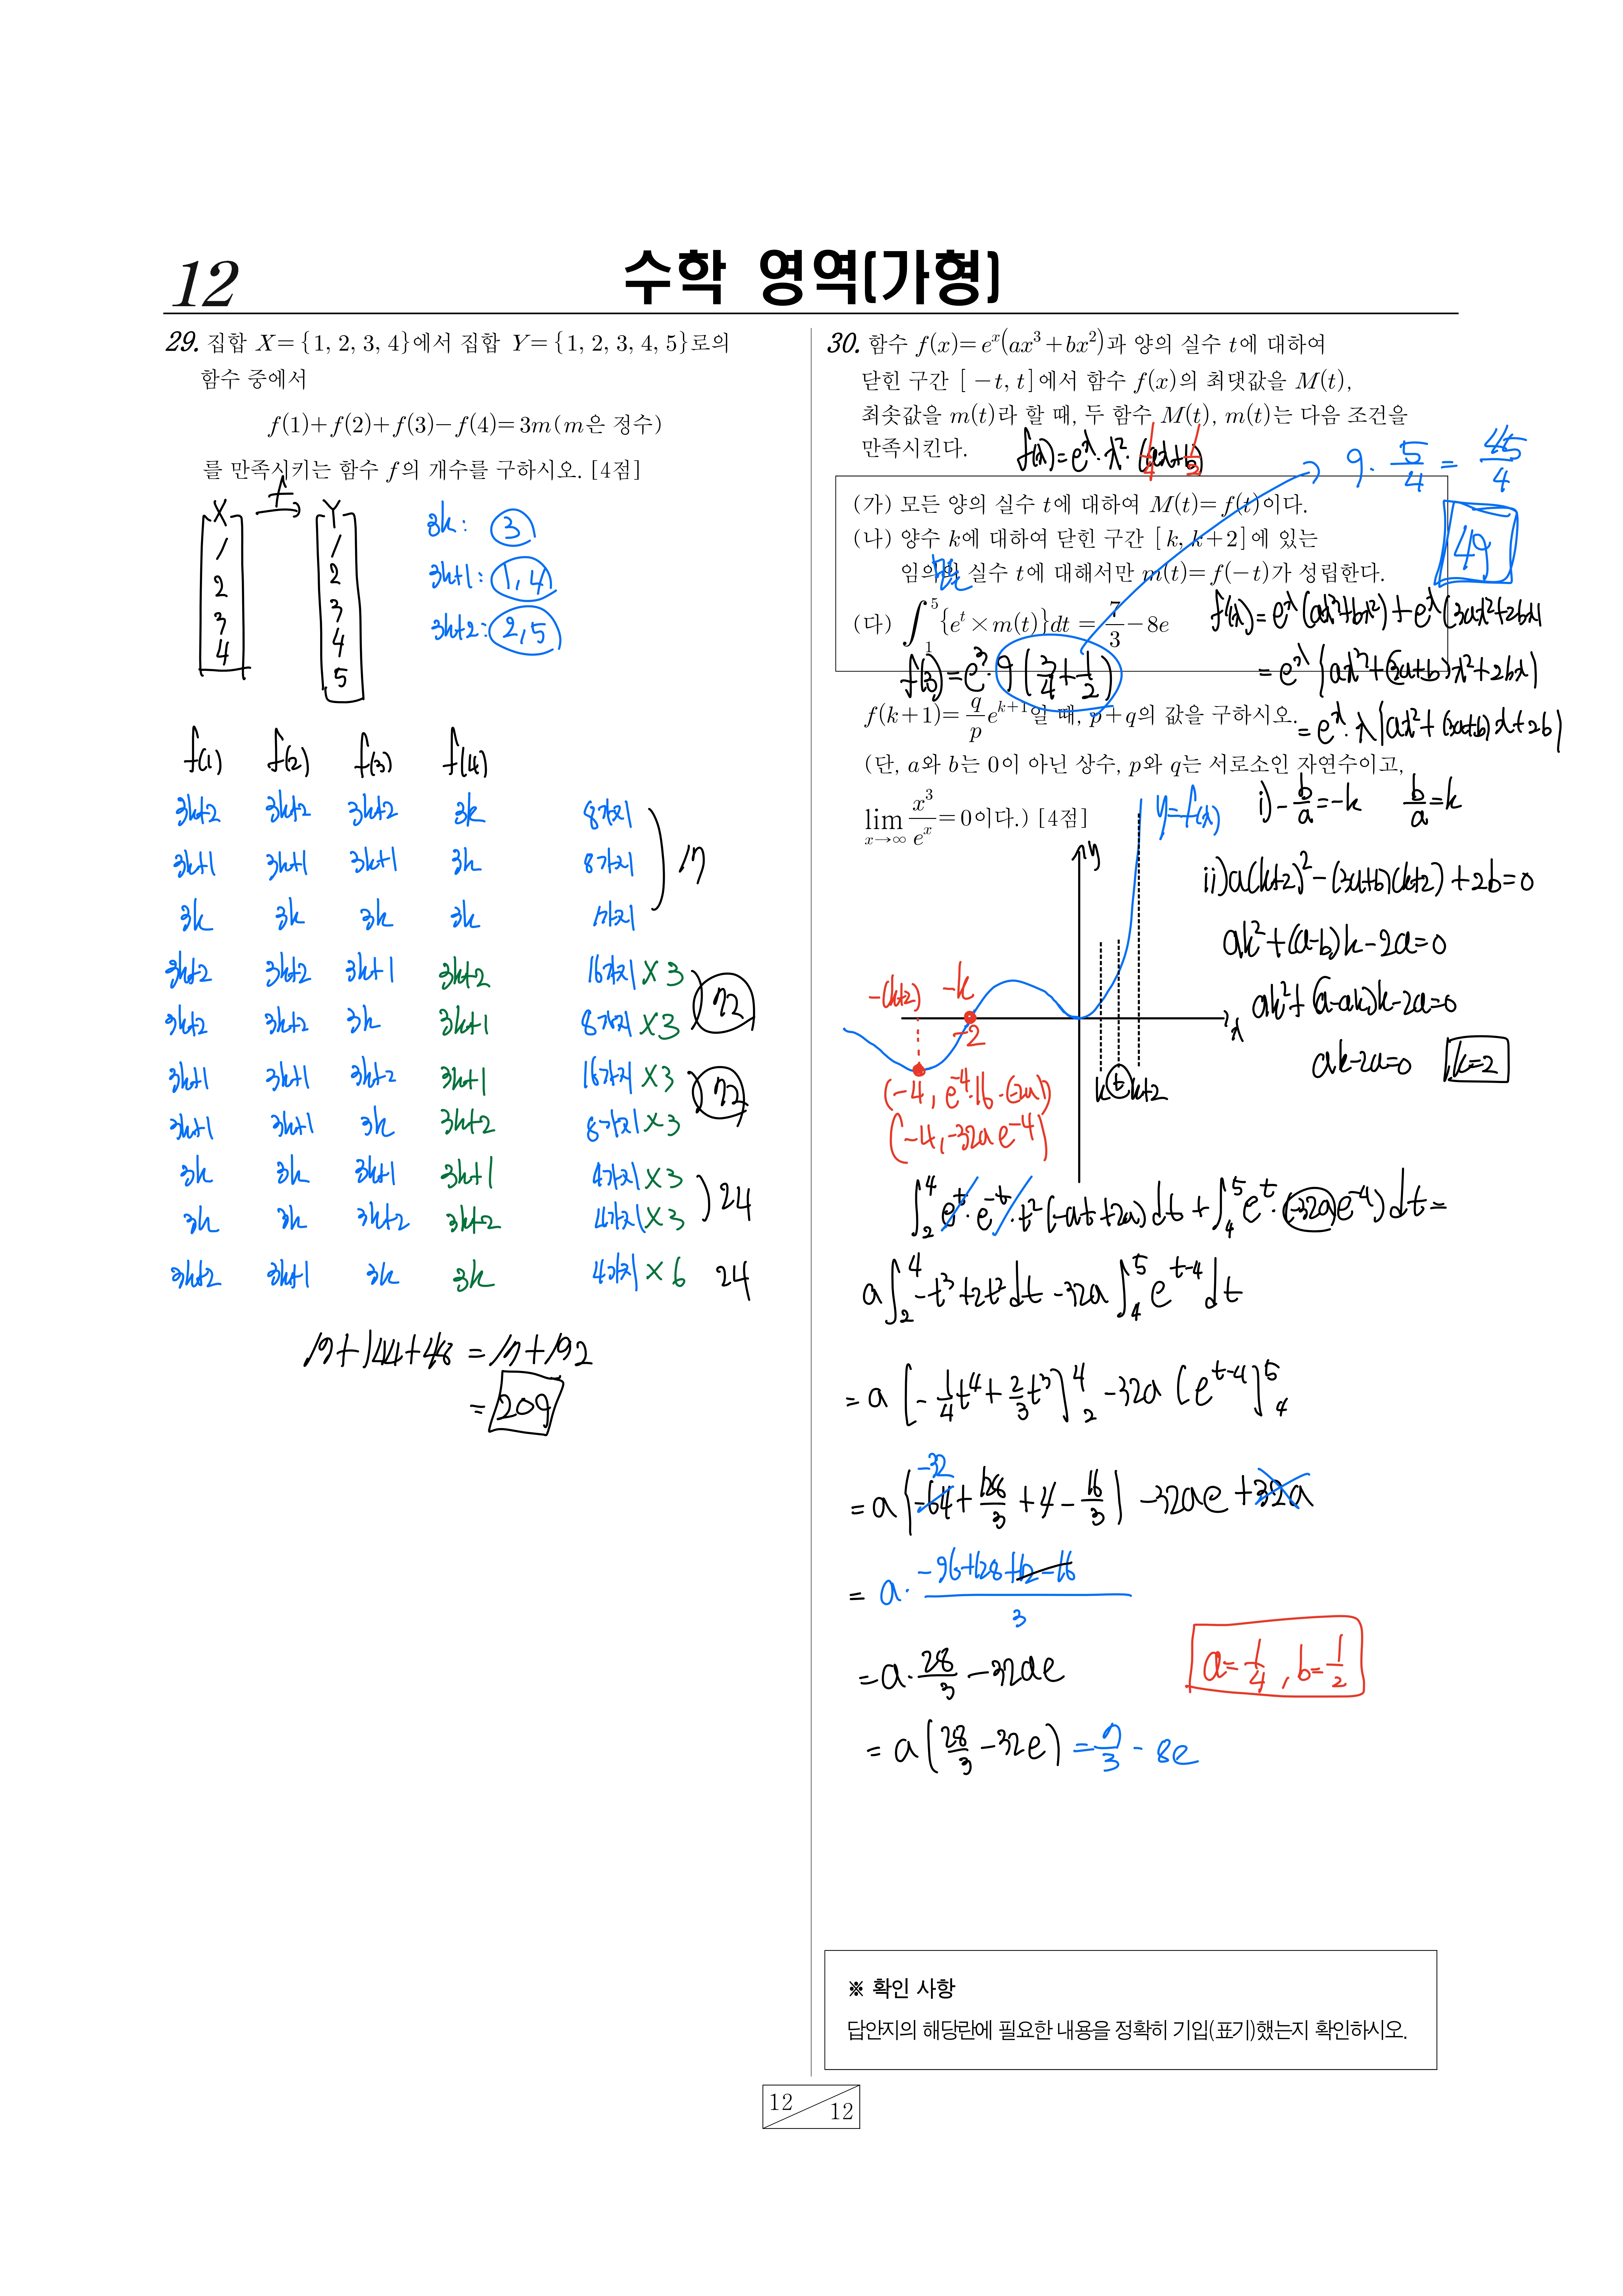 12
수학 영역(가형)
29. 집합 X={1, 2, 3, 4}에서 집합 Y={1, 2, 3, 4, 5}로의
함수 중에서
f(1)+f(2)+f(3)−f(4)=3m(m은 정수)
를 만족시키는 함수 f의 개수를 구하시오. [4점]
X f Y
1 1
2 2
3 3
4 4
5
3k: 3
3k+1: 1, 4
3k+2: 2, 5
f(1) f(2) f(3) f(4)
3k+2 3k+2 3k+2 3k 8가지
3k+1 3k+1 3k+1 3k 8가지
17
3k 3k 3k 3k 1가지
3k+2 3k+2 3k+1 3k+2 16가지 ×3
72
3k+2 3k+2 3k 3k+1 8가지 ×3
3k+1 3k+1 3k+2 3k+1 16가지 ×3
72
3k+1 3k+1 3k 3k+2 8가지 ×3
3k 3k 3k+1 3k+1 4가지 ×3
24
3k 3k 3k+2 3k+2 4가지 ×3
3k+2 3k+1 3k 3k 4가지 ×6 24
17+144+48 = 17+192
= 209
30. 함수 f(x)=e^x(ax³+bx²)과 양의 실수 t에 대하여
닫힌 구간 [−t, t]에서 함수 f(x)의 최댓값을 M(t),
최솟값을 m(t)라 할 때, 두 함수 M(t), m(t)는 다음 조건을
만족시킨다.
f(x)=e^x·x²·(ax+b)
1/4 1/2
9·5/4 = 45/4
49
(가) 모든 양의 실수 t에 대하여 M(t)=f(t)이다.
(나) 양수 k에 대하여 닫힌 구간 [k, k+2]에 있는
임의의 실수 t에 대해서만 m(t)=f(−t)가 성립한다.
모든
(다) ∫₁⁵{e^t×m(t)}dt = 7/3−8e
f(3)=e³·9(3/4+1/2)
f(k+1)=q/p e^(k+1)일 때, p+q의 값을 구하시오.
(단, a와 b는 0이 아닌 상수, p와 q는 서로소인 자연수이고,
lim x→∞ x³/e^x=0이다.) [4점]
f'(x)=e^x(ax³+bx²)+e^x(3ax²+2bx)
=e^x{ax³+(3a+b)x²+2bx}
=e^x·x{ax²+(3a+b)x+2b}
i) −b/a=−k b/a=k
ii) a(k+2)²−(3a+b)(k+2)+2b=0
ak²+(a−b)k−2a=0
ak²+(a−ak)k−2a=0
ak−2a=0 k=2
y=f(x)
y
x
−(k+2) −k
−2
k t k+2
(−4, e⁻⁴·16·(−2a))
(−4, −32ae⁻⁴)
∫₂⁴ e^t·e^−t·t²(−at+2a)dt+∫₄⁵e^t·(−32a)e⁻⁴)dt=
a∫₂⁴−t³+2t²dt−32a∫₄⁵e^(t−4)dt
=a[−1/4t⁴+2/3t³]₂⁴−32a[e^(t−4)]₄⁵
−32
=a{−64+128/3+4−16/3}−32ae+32a
=a·(−96+128+12−16)/3
=a·28/3−32ae
=a(28/3−32e)=7/3−8e
a=1/4, b=1/2
※ 확인 사항
답안지의 해당란에 필요한 내용을 정확히 기입(표기)했는지 확인하시오.
12
12